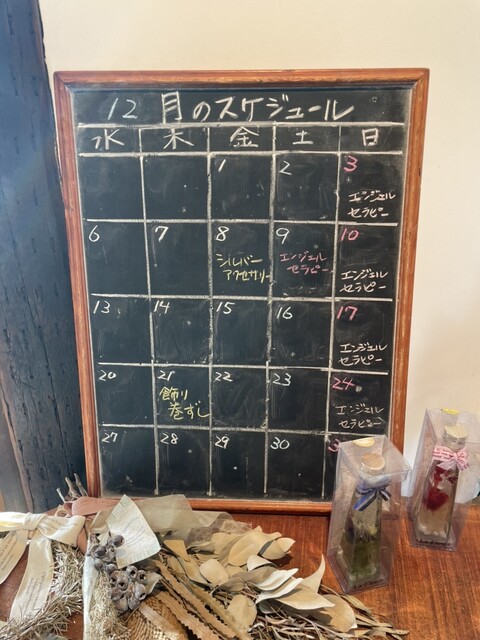 12月のスケジュール
水 木 金 土 日
1 2 3
エンジェル
セラピー
6 7 8 9 10
シルバー
アクセサリー
エンジェル
セラピー
エンジェル
セラピー
13 14 15 16 17
エンジェル
セラピー
20 21 22 23 24
飾り
巻ずし
エンジェル
セラピー
27 28 29 30 3